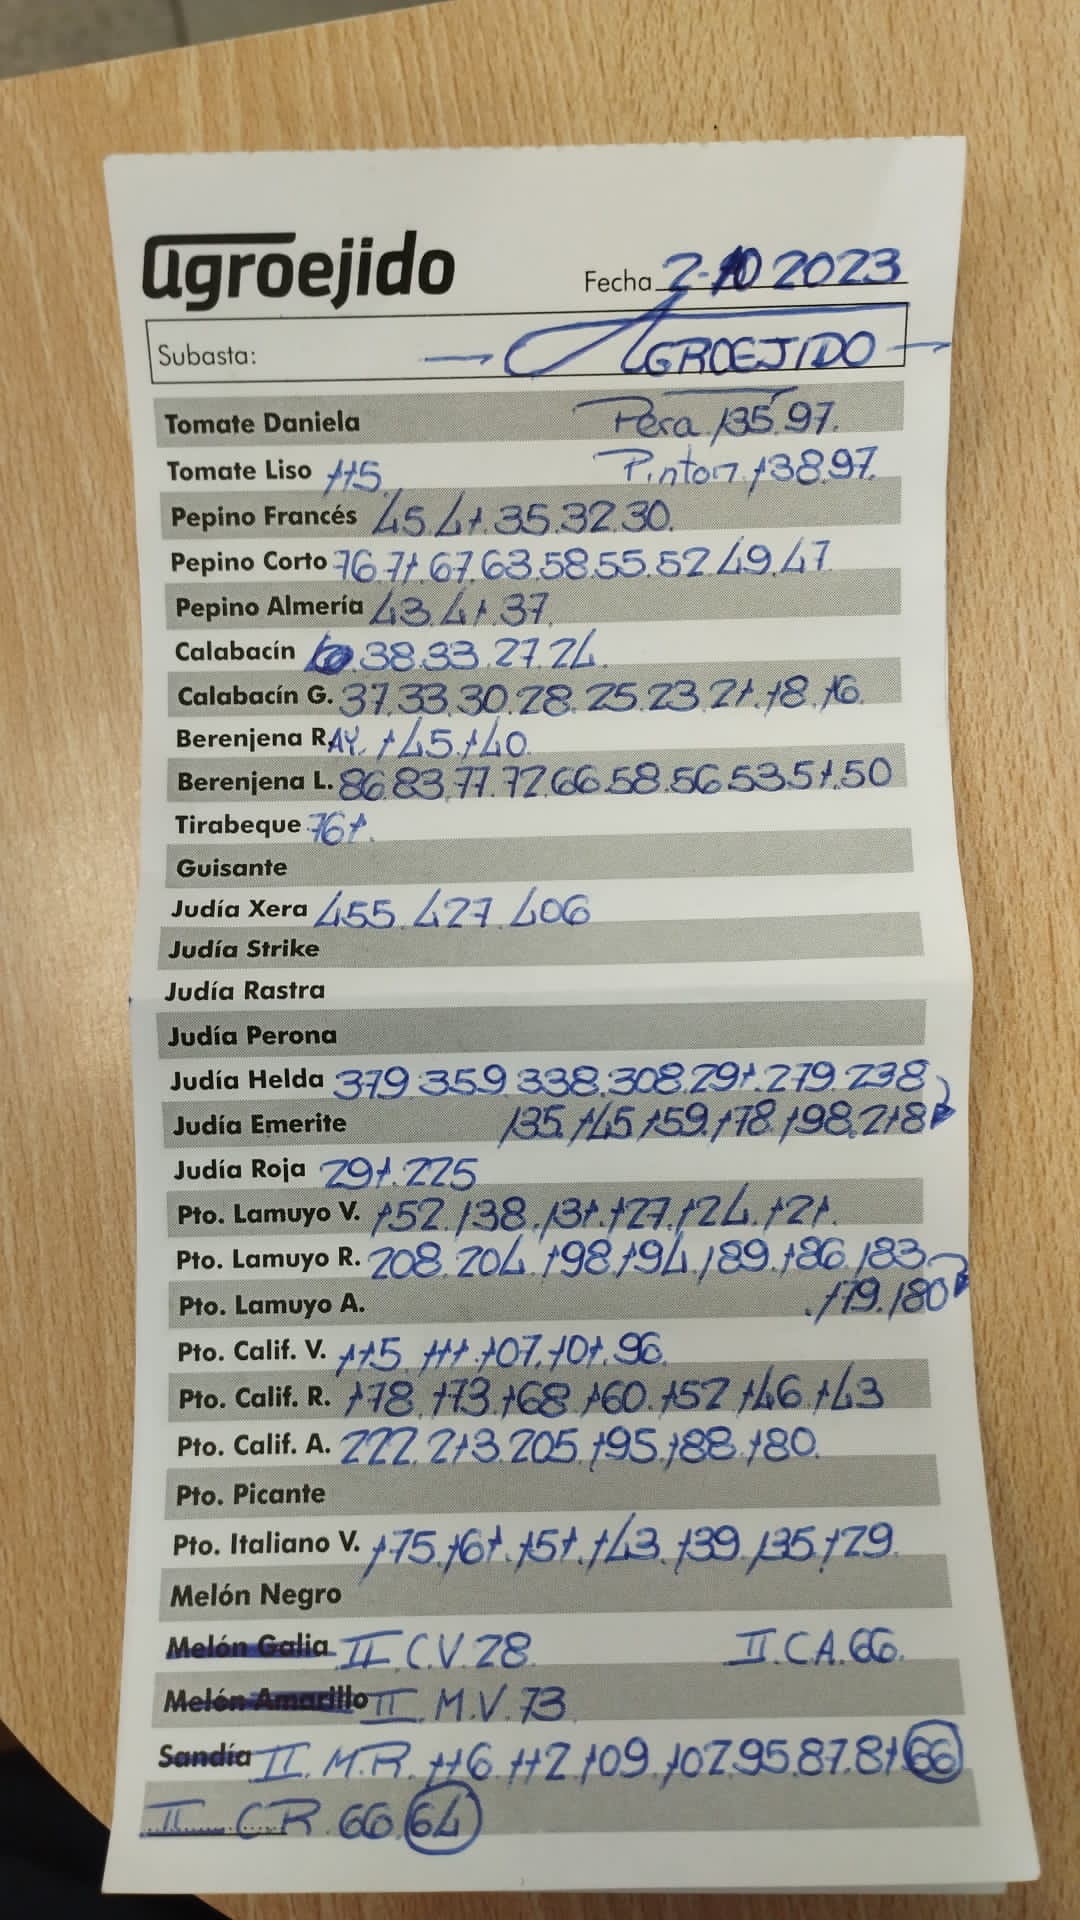 agroejido
Fecha 2-10 2023
Subasta: AGROEJIDO
Tomate Daniela Pera. 135.97.
Tomate Liso 115. Pinton. 138.97.
Pepino Francés 45.41.35.32.30.
Pepino Corto 76.71.67.63.58.55.52.49.47
Pepino Almería 43.41.37.
Calabacín 38.33.27.24.
Calabacín G. 37.33.30.28.25.23.21.18.16.
Berenjena RAY. 145.140.
Berenjena L. 86.83.77.72.66.58.56.53.51.50
Tirabeque 761.
Guisante
Judía Xera 455.427.406
Judía Strike
Judía Rastra
Judía Perona
Judía Helda 379.359.338.308.291.279.238
Judía Emerite 135.145.159.178.198.218
Judía Roja 291.225
Pto. Lamuyo V. 152.138.131.127.124.121.
Pto. Lamuyo R. 208.204.198.194.189.186.183
Pto. Lamuyo A. .179.180
Pto. Calif. V. 115.111.107.101.96.
Pto. Calif. R. 178.173.168.160.152.146.143
Pto. Calif. A. 222.213.205.195.188.180.
Pto. Picante
Pto. Italiano V. 175.161.151.143.139.135.129.
Melón Negro
Melón Galia II.C.V.28. II.C.A.66.
Melón Amarillo II.M.V.73
Sandía II.M.R.116.112.109.102.95.87.81.66
II C.R.66.64